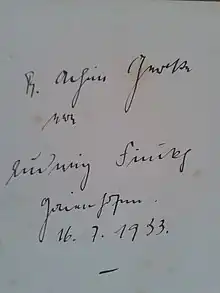 Dr. Achim Gercke
von
Ludwig Finckh
Gaienhofen.
16. 7. 1933.